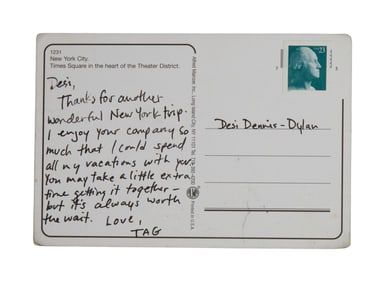 1231
New York City.
Times Square in the heart of the Theater District.
Desi,
Thanks for another
wonderful New York trip.
I enjoy your company so
much that I could spend
all my vacations with you.
You may take a little extra
time getting it together –
but it's always worth
the wait. Love,
TAG
Alfred Mainzer, Inc., Long Island City, NY 11101
Printed in U.S.A.
23
Desi Dennis-Dylan